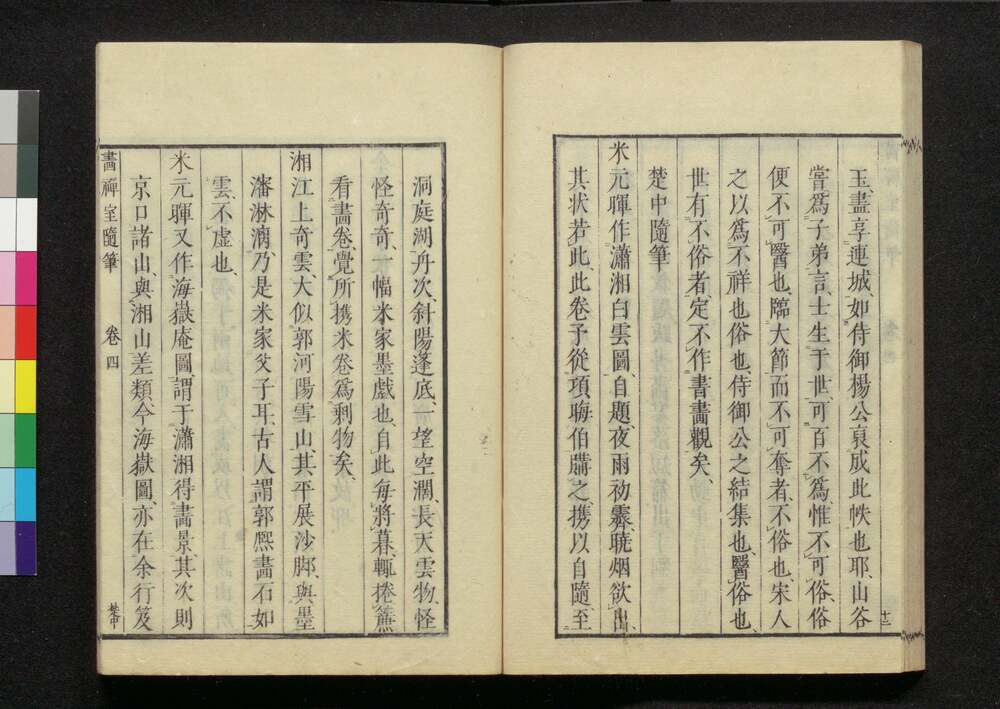 玉盡享連城如侍御楊公哀成此帙也耶山谷
嘗爲子弟言士生于世可百不爲惟不可俗俗
便不可醫也臨大節而不可奪者不俗也宋人
之以爲不祥也俗也侍御公之結集也醫俗也
世有不俗者定不作書畫觀矣
楚中隨筆
米元暉作瀟湘白雲圖自題夜雨初霽曉烟欲出
其状若此此卷予從項晦伯購之携以自隨至
十二
洞庭湖舟次斜陽蓬底一望空濶長天雲物怪
怪奇奇一幅米家墨戲也自此每將暮輒捲簾
看畫卷覺所携米卷爲剩物矣
湘江上奇雲大似郭河陽雪山其平展沙脚與墨
瀋淋漓乃是米家父子耳古人謂郭熙畫石如
雲不虛也
米元暉又作海嶽庵圖謂于瀟湘得畫景其次則
京口諸山與湘山差類今海嶽圖亦在余行笈
畫禪室隨筆 卷四 楚中